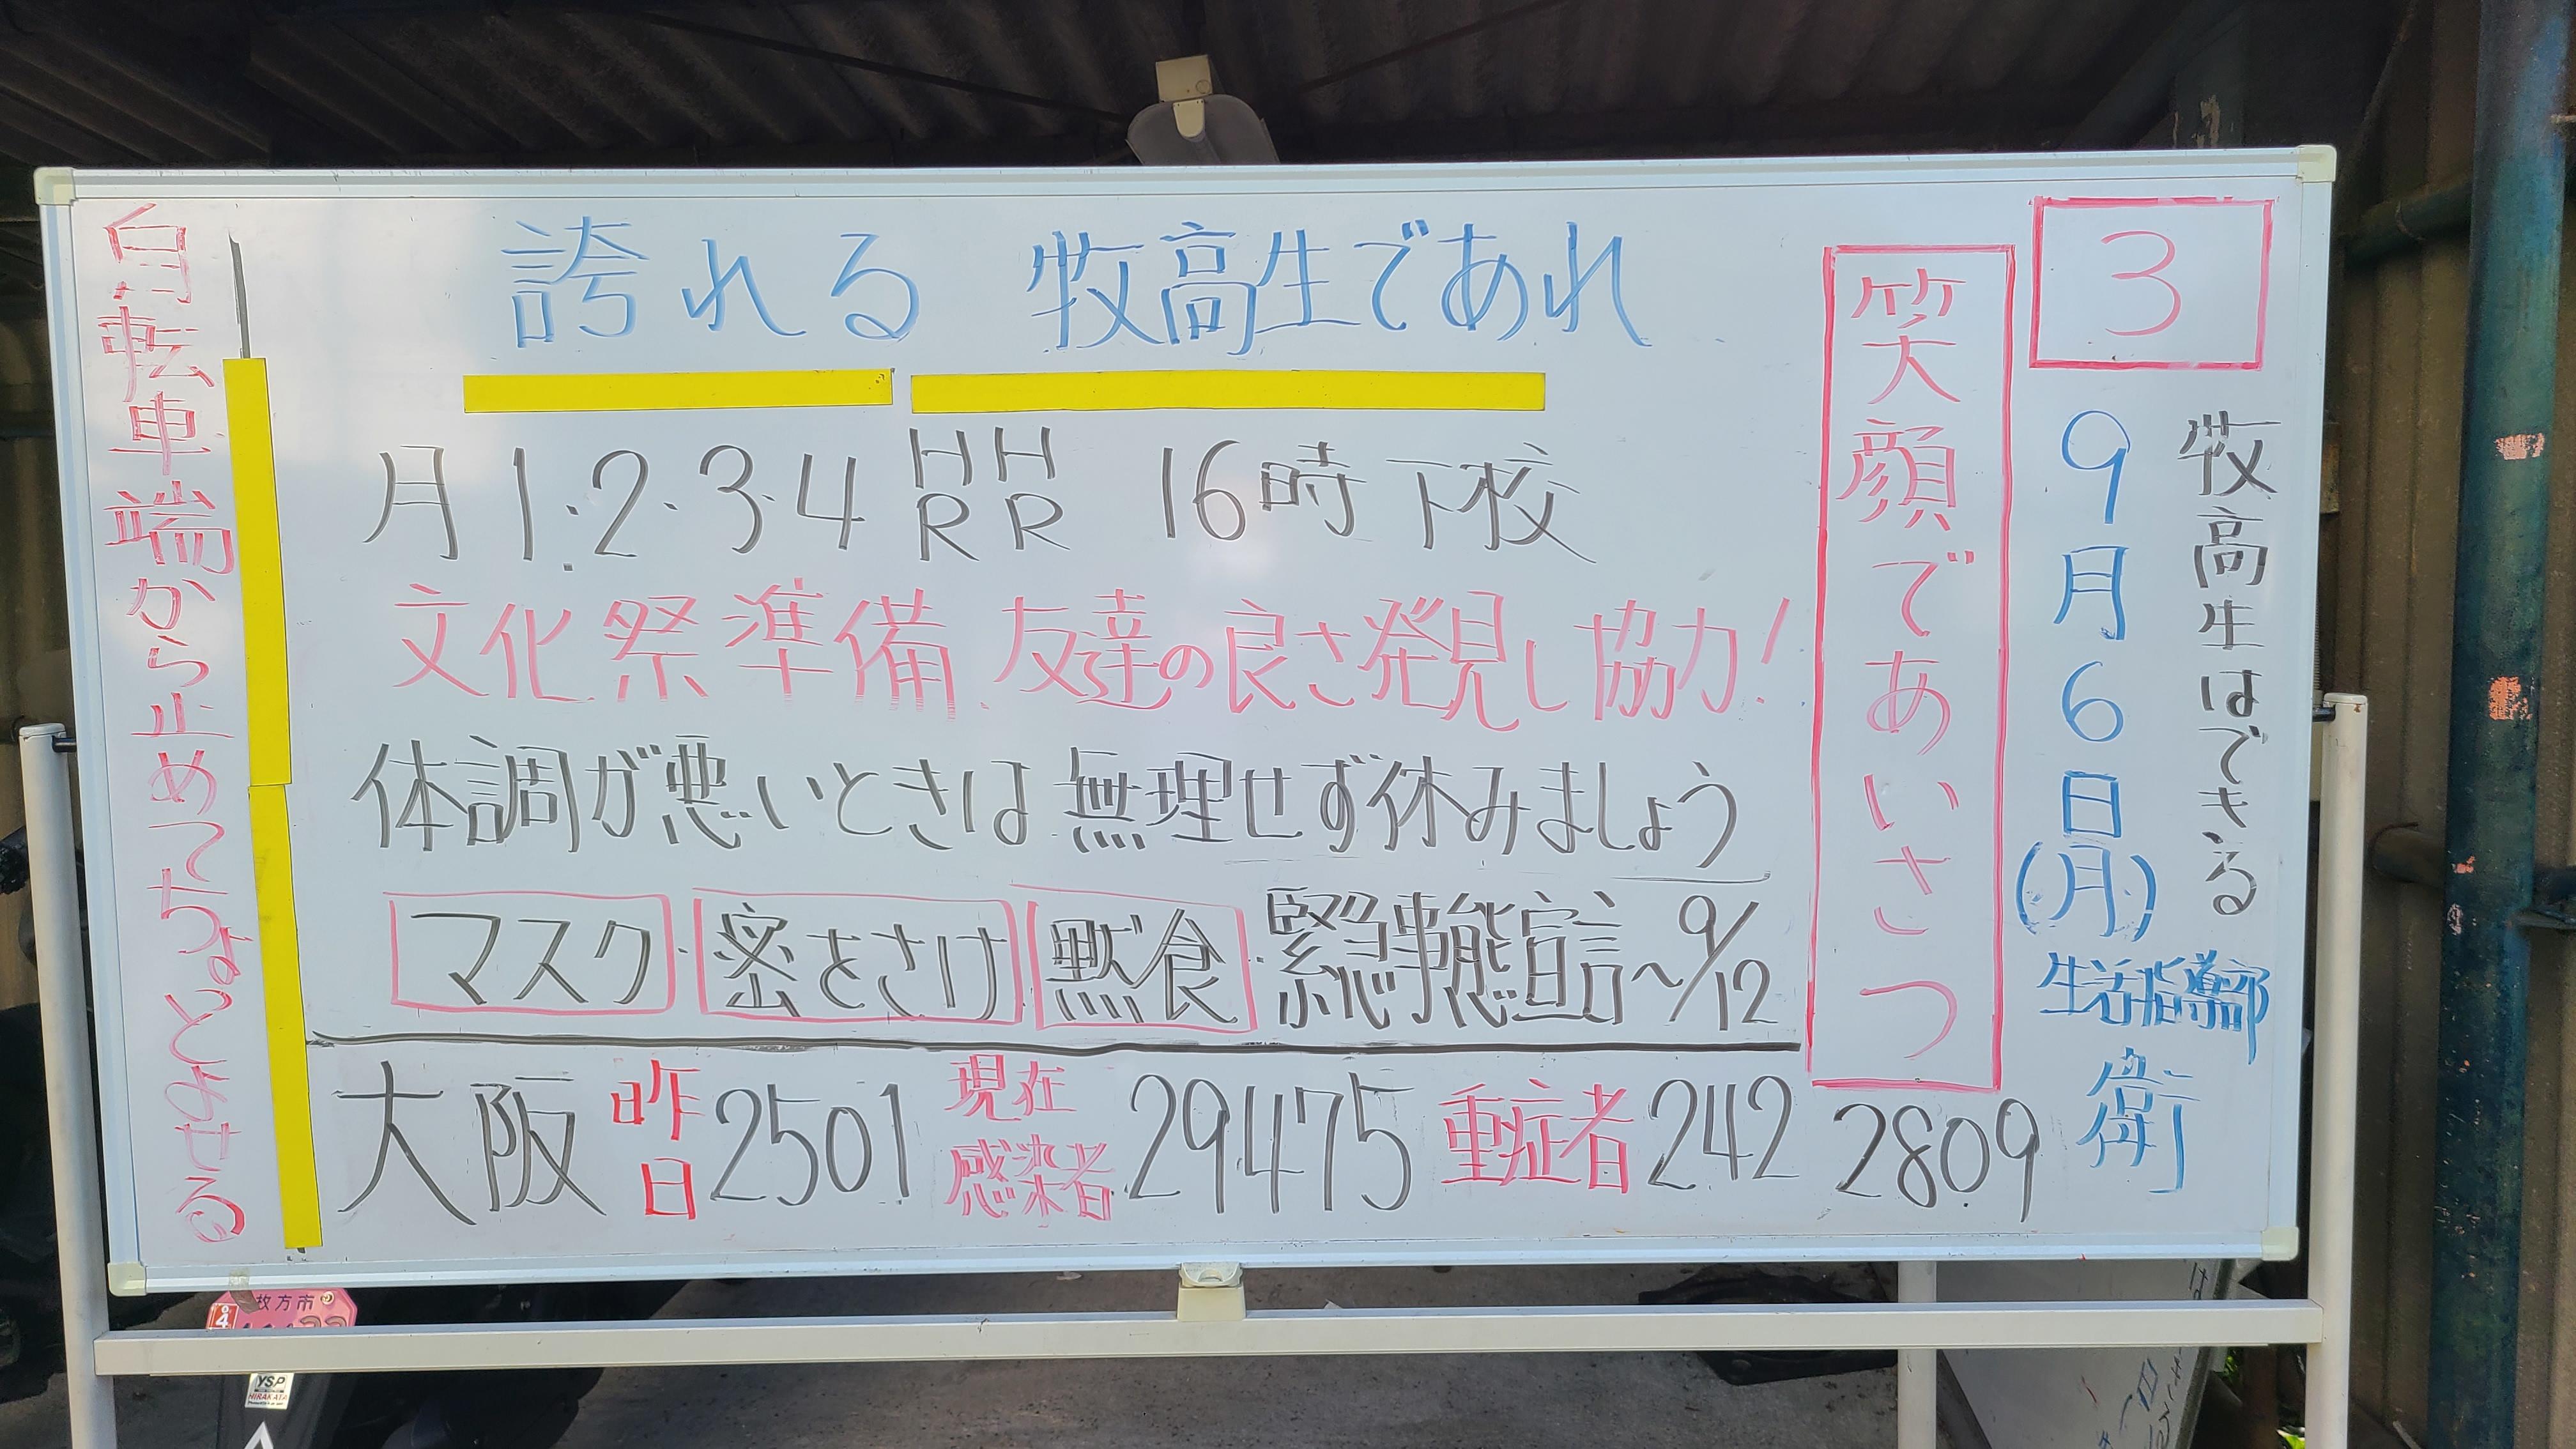 3
牧高生はできる
9月6日(月)
生活指導部
衛
笑顔であいさつ
誇れる 牧高生であれ
月 1・2・3・4 HR HR 16時下校
文化祭準備 友達の良さ発見し協力!
体調が悪いときは無理せず休みましょう
マスク・密をさけ 黙食・緊急事態宣言~9/12
大阪 昨日2501 現在感染者29475 重症者242 2809
自転車端から止めてちょとみせる
枚方市
YSP
HIRAKATA